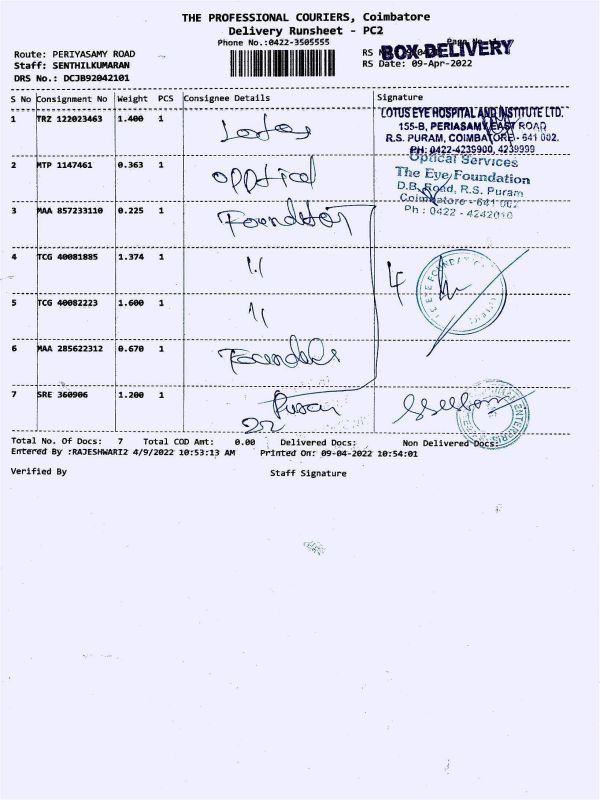 THE PROFESSIONAL COURIERS, Coimbatore
Delivery Runsheet - PC2
Phone No.:0422-3505555
BOX DELIVERY
Route: PERIYASAMY ROAD
Staff: SENTHILKUMARAN
RS Date: 09-Apr-2022
DRS No.: DCJB92042101
S No Consignment No Weight PCS Consignee Details Signature
1 TRZ 122023463 1.400 1 Lotus
LOTUS EYE HOSPITAL AND INSTITUTE LTD.
155-B, PERIASAMY EAST ROAD
R.S. PURAM, COIMBATORE - 641 002.
PH: 0422-4239900, 4239999
2 MTP 1147461 0.363 1 opptical
Optical Services
The Eye Foundation
D.B. Road, R.S. Puram
Coimbatore - 641 002
Ph : 0422 - 4242010
3 MAA 857233110 0.225 1
4 TCG 40081885 1.374 1 4
5 TCG 40082223 1.600 1
6 MAA 285622312 0.670 1
7 SRE 360906 1.200 1
Total No. Of Docs: 7 Total COD Amt: 0.00 Delivered Docs: Non Delivered Docs:
Entered By :RAJESHWARI2 4/9/2022 10:53:13 AM Printed On: 09-04-2022 10:54:01
Verified By Staff Signature